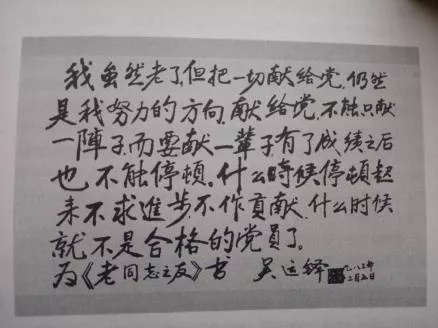 我虽然老了,但把一切献给党,仍然
是我努力的方向,献给党,不能只献
一陣子,而要献一輩子,有了成绩之后
也不能停顿,什么時候停顿起
来不求進步,不作貢献,什么时候
就不是合格的党員了。
为《老同志之友》书 吴运铎 一九八三年
二月五日